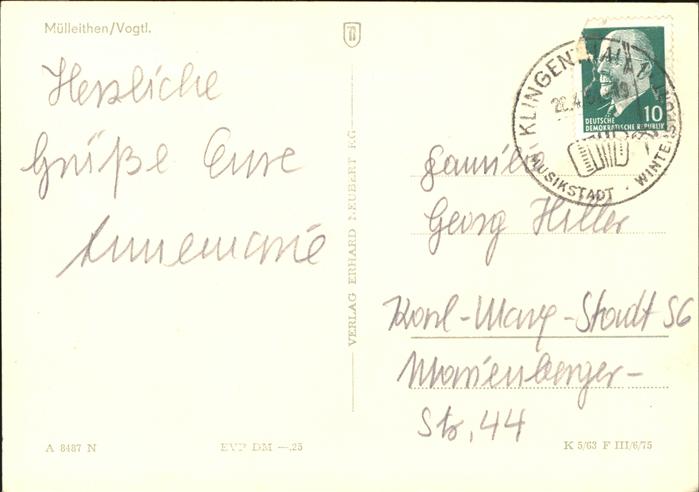 Mülleithen/Vogtl.
Herzliche
Grüße Eure
Annemarie
VERLAG ERHARD NEUBERT KG
KLINGENTHAL
MUSIKSTADT · WINTERSPORT
10
DEUTSCHE
DEMOKRATISCHE REPUBLIK
Familie
Georg Hiller
Karl-Marx-Stadt S6
Marienberger-
Str. 44
A 8487 N
EVP DM —,25
K 5/63 F III/6/75